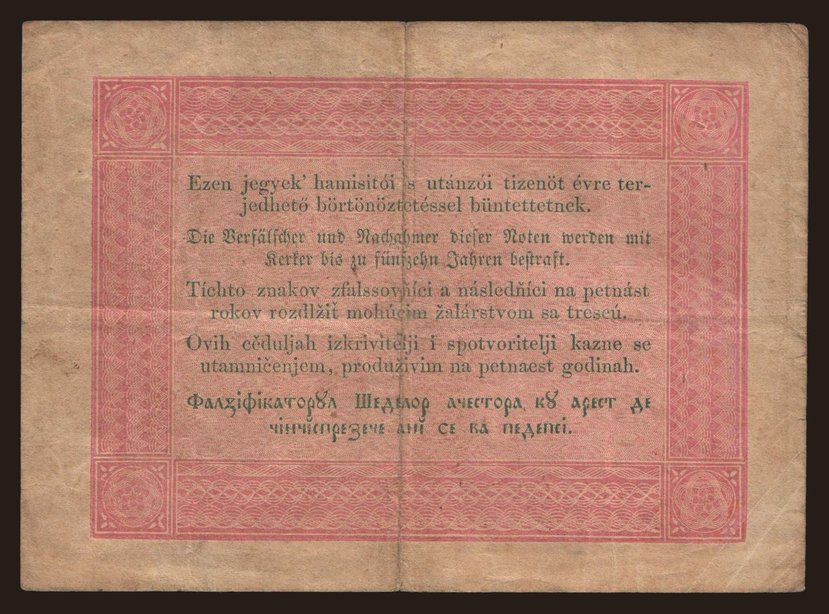 Ezen jegyek' hamisitói 's utánzói tizenöt évre ter-
jedhető börtönöztetéssel büntettetnek.
Die Verfälscher und Nachahmer dieser Noten werden mit
Kerker bis zu fünfzehn Jahren bestraft.
Tíchto znakov zfalssovňíci a následňíci na petnást
rokov rozdlžiť mohúcim žalárstvom sa trescú.
Ovih cěduljah izkrivitelji i spotvoritelji kazne se
utamničenjem, produživim na petnaest godinah.
Фалꙁіфікаторꙋл Шеделор ачестора кꙋ арест де
чінчіспрезече ані се ва педепсі.